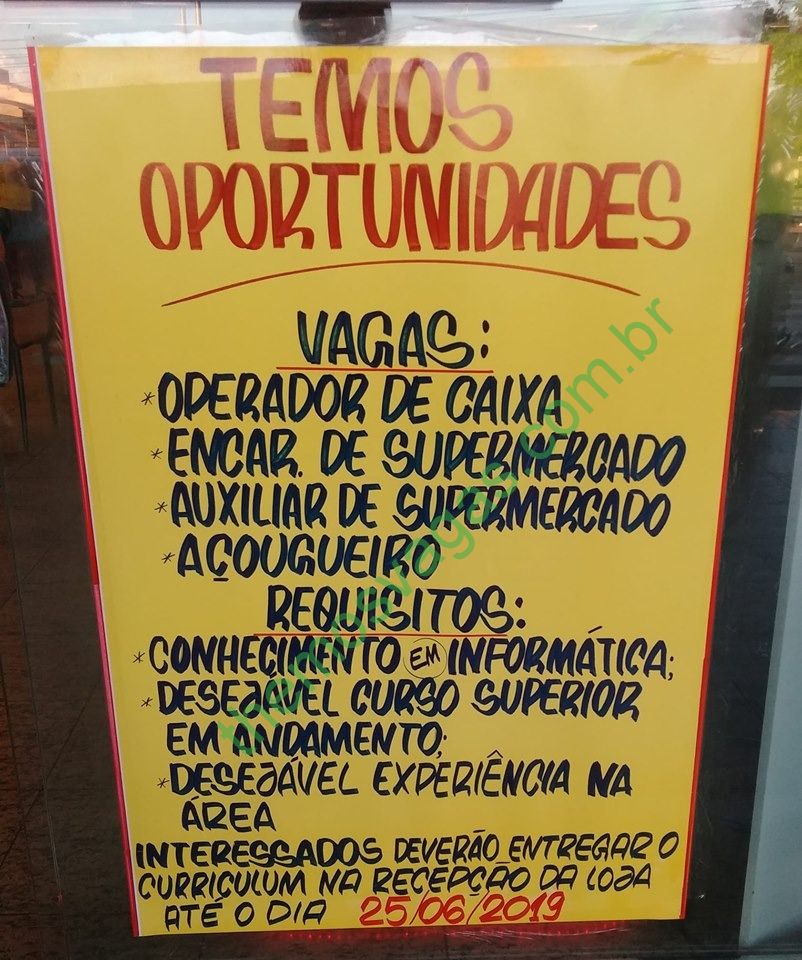 TEMOS
OPORTUNIDADES
VAGAS:
*OPERADOR DE CAIXA
*ENCAR. DE SUPERMERCADO
*AUXILIAR DE SUPERMERCADO
*AÇOUGUEIRO
REQUISITOS:
*CONHECIMENTO EM INFORMÁTICA;
*DESEJÁVEL CURSO SUPERIOR
EM ANDAMENTO;
*DESEJÁVEL EXPERIÊNCIA NA
ÁREA
INTERESSADOS DEVERÃO ENTREGAR O
CURRIÇULUM NA RECEPÇÃO DA LOJA
ATÉ O DIA 25/06/2019
themosvagas.com.br